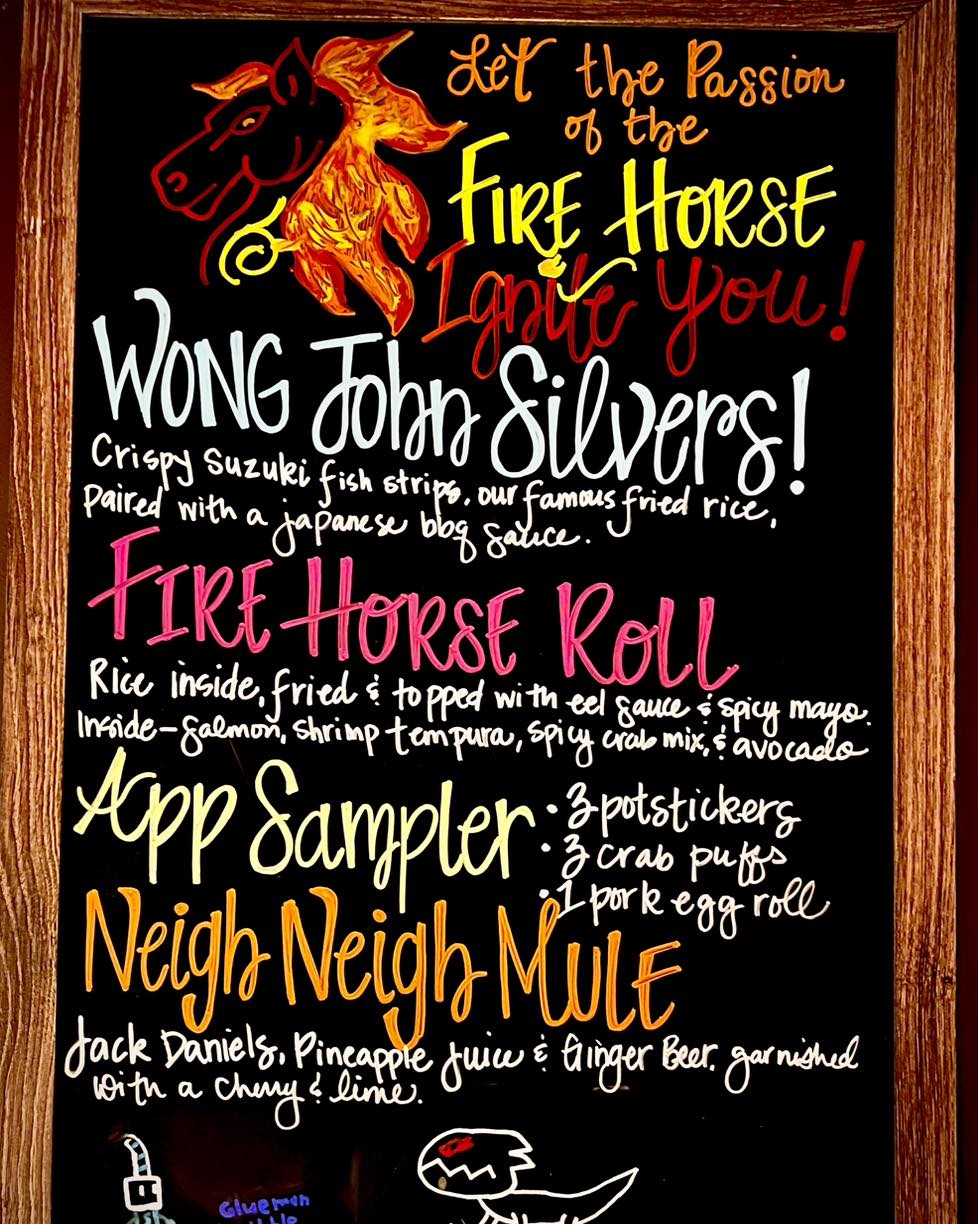 Let the Passion
of the
FIRE HORSE
Ignite You!
WONG John Silvers!
Crispy Suzuki fish strips, our famous fried rice,
paired with a japanese bbq sauce.
FIRE HORSE Roll
Rice inside, fried & topped with eel sauce & spicy mayo.
Inside-salmon, shrimp tempura, spicy crab mix, & avocado
App Sampler
• 3 potstickers
• 3 crab puffs
• 1 pork egg roll
Neigh Neigh MULE
Jack Daniels, Pineapple Juice & Ginger Beer, garnished
with a cherry & lime.